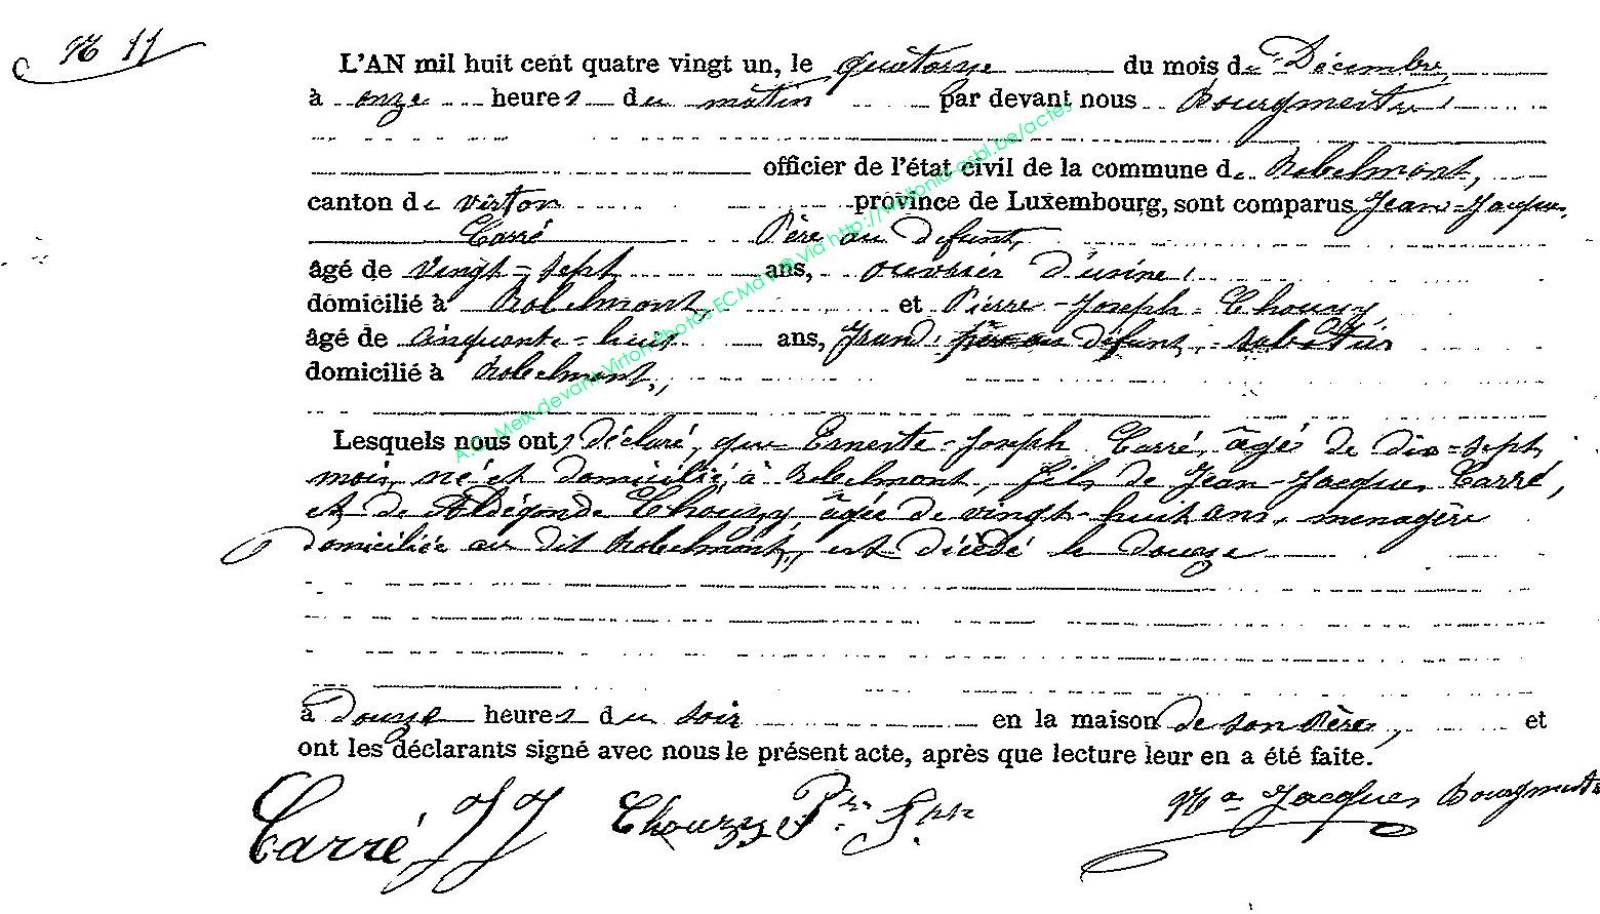 N 11
L'AN mil huit cent quatre vingt un, le quatorze du mois de Décembre,
à onze heures du matin par devant nous Bourgmestre,
officier de l'état civil de la commune de Robelmont,
canton de Virton province de Luxembourg, sont comparus Jean-Jacques
Carré Père au défunt,
âgé de vingt-sept ans, ouvrier d'usine,
domicilié à Robelmont, et Pierre-Joseph Thourzy
âgé de cinquante-huit ans, Grand père au défunt, sabotier
domicilié à Robelmont,
Lesquels nous ont déclaré, que Erneste-Joseph Carré, âgé de dix-sept
mois, né et domicilié, à Robelmont, fils de Jean-Jacques Carré,
et de Aldégonde Thourzy, âgée de vingt-huit ans, menagère
domiciliée au dit Robelmont, est décédé le douze
à douze heures du soir en la maison de son Père, et
ont les déclarants signé avec nous le présent acte, après que lecture leur en a été faite.
Carré JJ Thourzy Pre Jph Jacques Bourgmestre
A.C. Meix-devant-Virton Photos ECMdV © via http://wallonia-asbl.be/actes